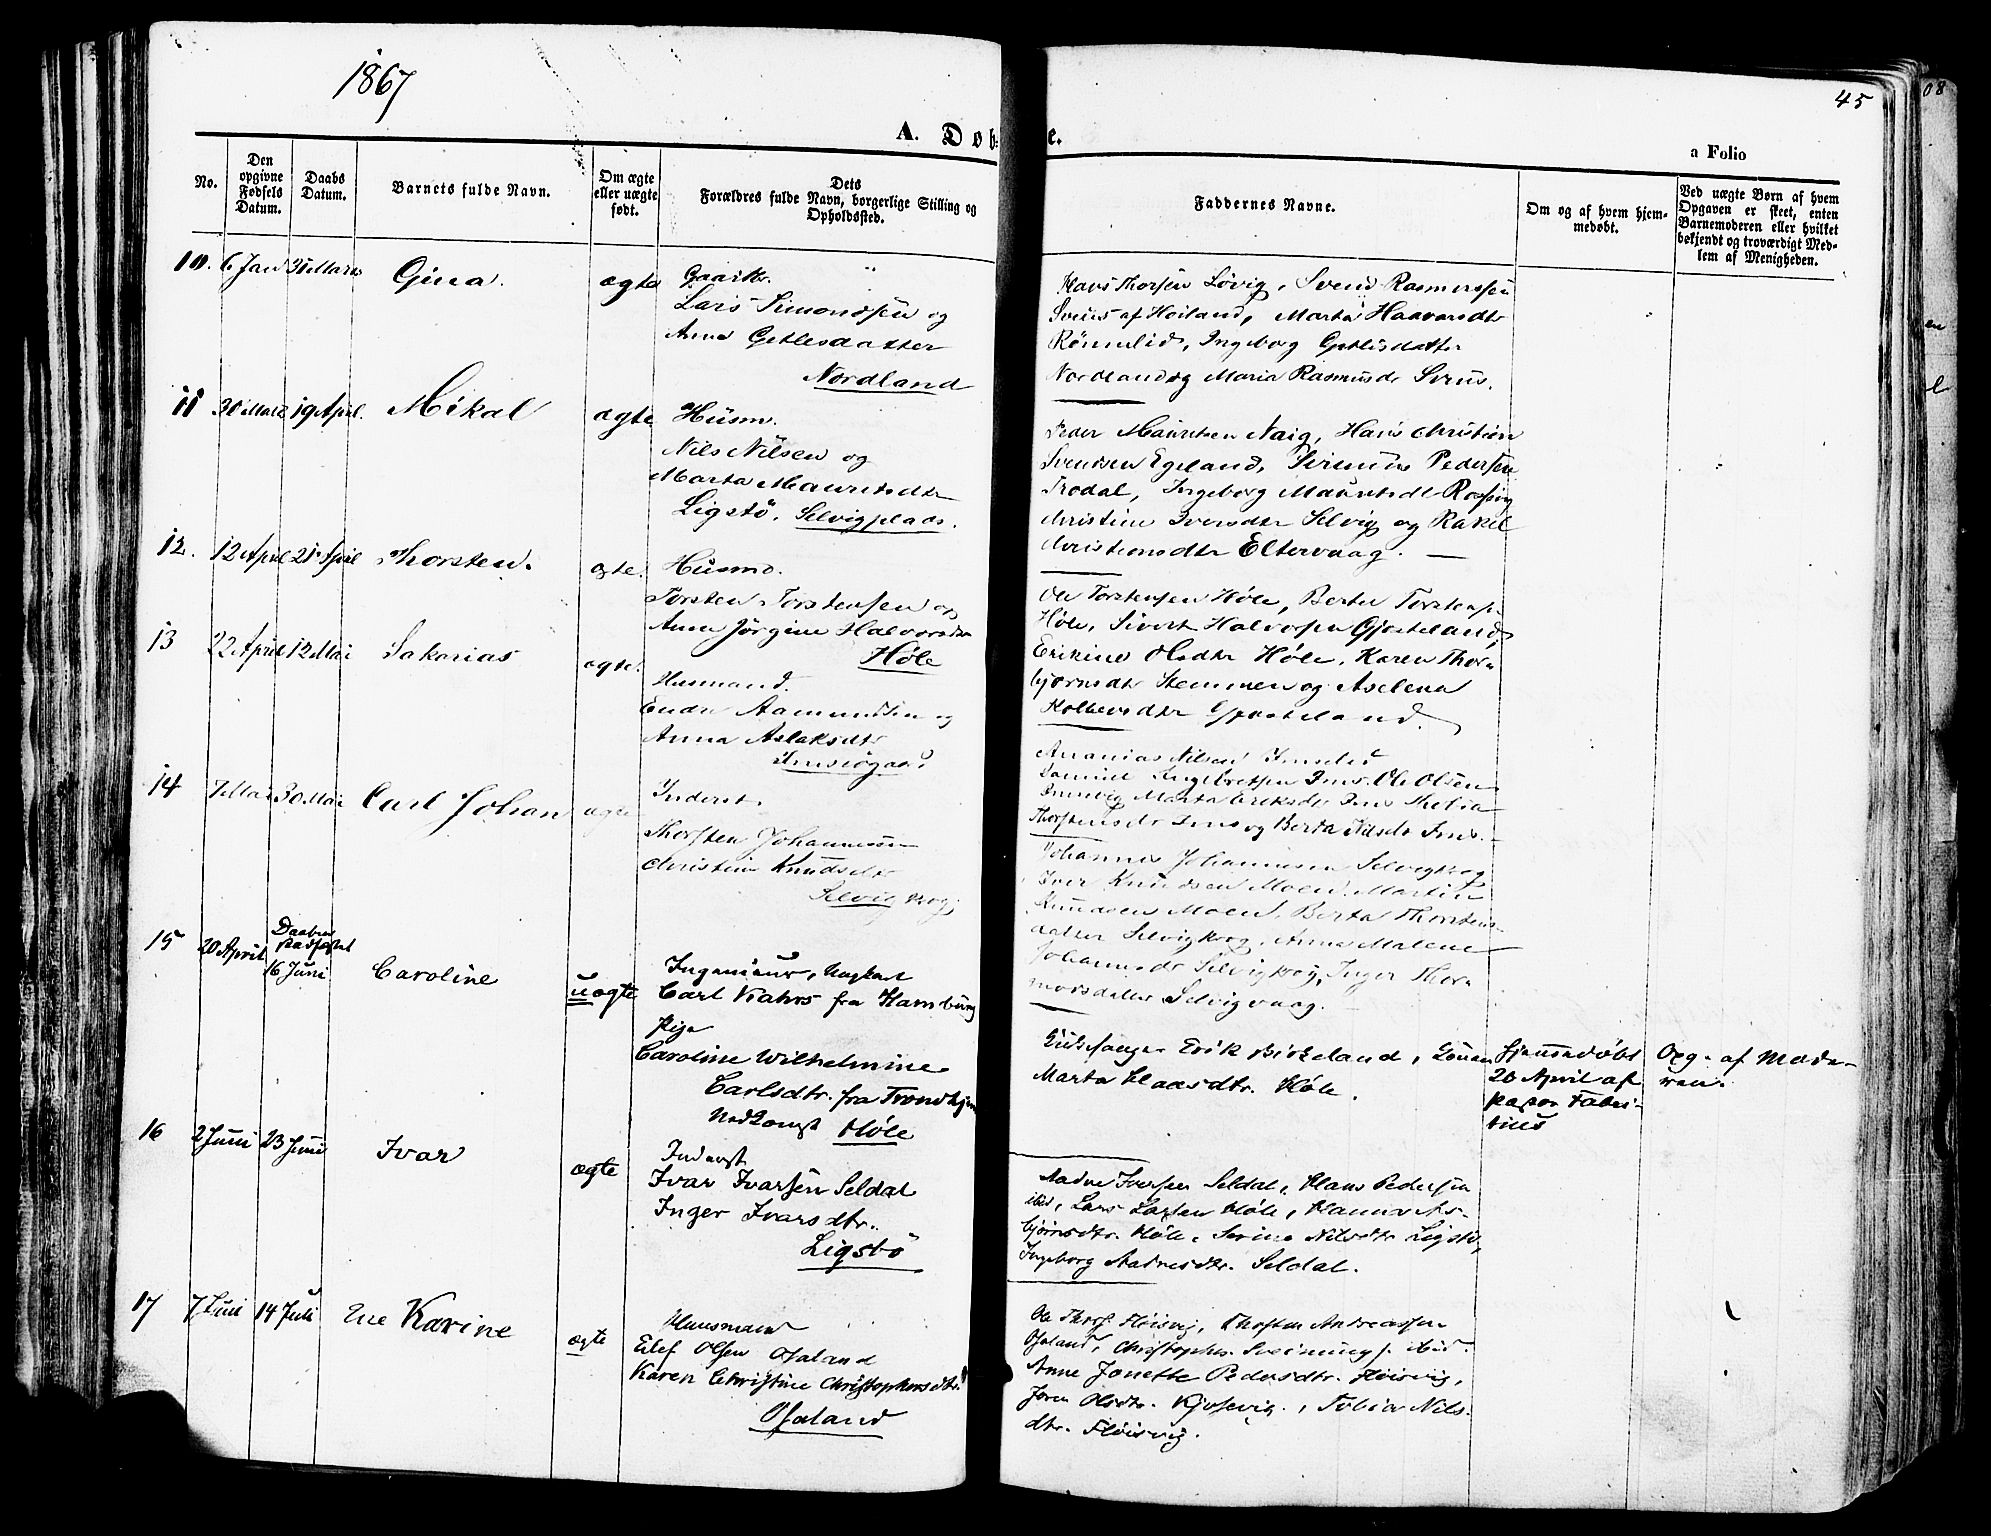 1867
45
A. Døb-
e.
a Folio
No.
Den opgivne Fødsels Datum.
Daabs Datum.
Barnets fulde Navn.
Om ægte eller uægte født.
Dets Forældres fulde Navn, borgerlige Stilling og Opholdssted.
Faddernes Navne.
Om og af hvem hjemmedøbt.
Ved uægte Børn af hvem Opgaven er skeet, enten Barnemoderen eller hvilket bekjendt og troværdigt Medlem af Menigheden.
10. 6 Jan 31 Marts Gina. ægte
Gaardbr.
Lars Simondsen og
Anna Getlesdatter
Nordland
Hans Thorsen Løvig, Svend Rasmussen
af Høiland, Marta Haavarsdtr
Rönnelid, Ingeborg Getlesdatter
Nordland og Maria Rasmusdr
11 30 Marts 19 April. Mikal ægte
Husm.
Nils Nilsen og
Marta Mauritsdtr
Ligstö. Selvigplads.
Peder Mauritsen Naig, Hans Christian
Svendsen Egeland, Sirenius Pedersen
Frodal, Ingeborg Mauritsdtr
Christine Iversdtr Selvig og Rakel
Christiansdtr Eltervaag.
12. 12 April 21 April Thorsten. ægte.
Husmd.
Torsten Torstensen og
Anne Jörgine Halvorsdtr
Høle
Ole Torstensen Høle, Berte Torstensd
Høle, Sivert Halvorsen Gjesteland,
Erikine Olsdtr Høle, Karen Thor-
bjørnsdtr Stemmen og Aselena
Gjesteland.
13 22 April 12 Mai Sakarias ægte.
Husmand.
Endre Aamundsen og
Anna Aslaksdtr
Ananias Nilsen Imslid
Samuel Ingebretsen Ims. Ole Olsen
Marta Eriksdr Ims
Thorstensdr Ims og Berta Nilsdr Ims.
14 7 Mai 30 Mai Carl Johan ægte
Inderst.
Thorsten Johannessen
Christine Knudsdtr
Selvig krog.
Johannes Johannessen Selvigkrog
Iver Knudsen Moen. Martin
Knudsen Moen. Berta Thorstens-
datter Selvigkrog, Anna Malene
Johannesdr Selvigkrog, Inger Thor-
morsdatter Selvigvaag.
15 20 April Daaben stadfæstet 16 Juni Caroline uægte
Ingenieur, Ungkarl
Carl Kahrs fra Hamburg
Pige
Caroline Wilhelmine
Carlsdtr. fra Trondhjem
Nedkomst Høle
Kirkesanger Erik Birkeland, Konen
Marta Klaasdtr. Høle.
Hjemmedøbt
20 April af
Pastor Fabri-
tius
Opg. af Mode-
ren.
16 2 Juni 23 Juni Ivar ægte
Inderst
Ivar Ivarsen Seldal
Inger Ivarsdtr.
Ligstö
Aadne Iversen Seldal, Hans Pedersen
ibid, Lars Larsen Høle, Hanna As-
bjørnsdtr. Høle, Serine Nilsdtr Ligstö,
Ingeborg Aadnesdtr. Seldal.
17 7 Juni 14 Juli Ene Karine ægte
Huusmand
Elef Olsen Osaland
Karen Christine Christophersdtr.
Osaland
Ole Thors. Fløisvig, Thorsten Andreassen
Osaland, Christopher Sveinungs. ibid.
Anne Jonette Pedersdtr. Fløisvig,
Joren Olsdtr. Kjosevig, Tobia Nils-
dtr. Fløisvig.